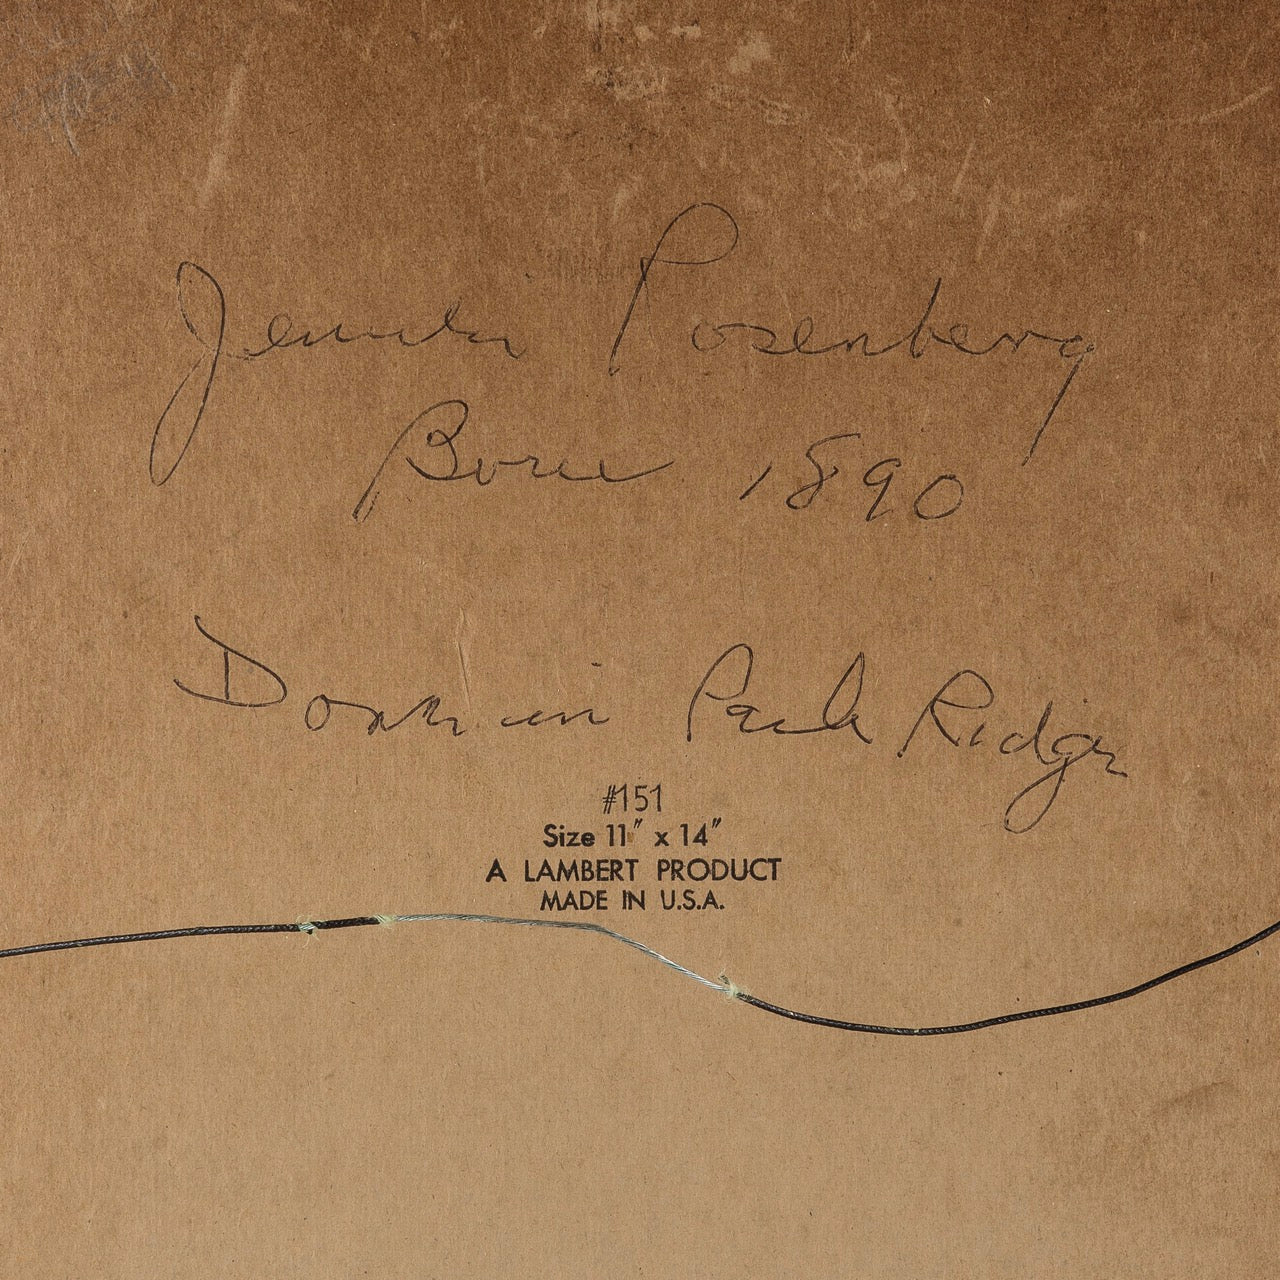 Jennifer Rosenberg
Born 1890
Done in Park Ridge
#151
Size 11" x 14"
A LAMBERT PRODUCT
MADE IN U.S.A.